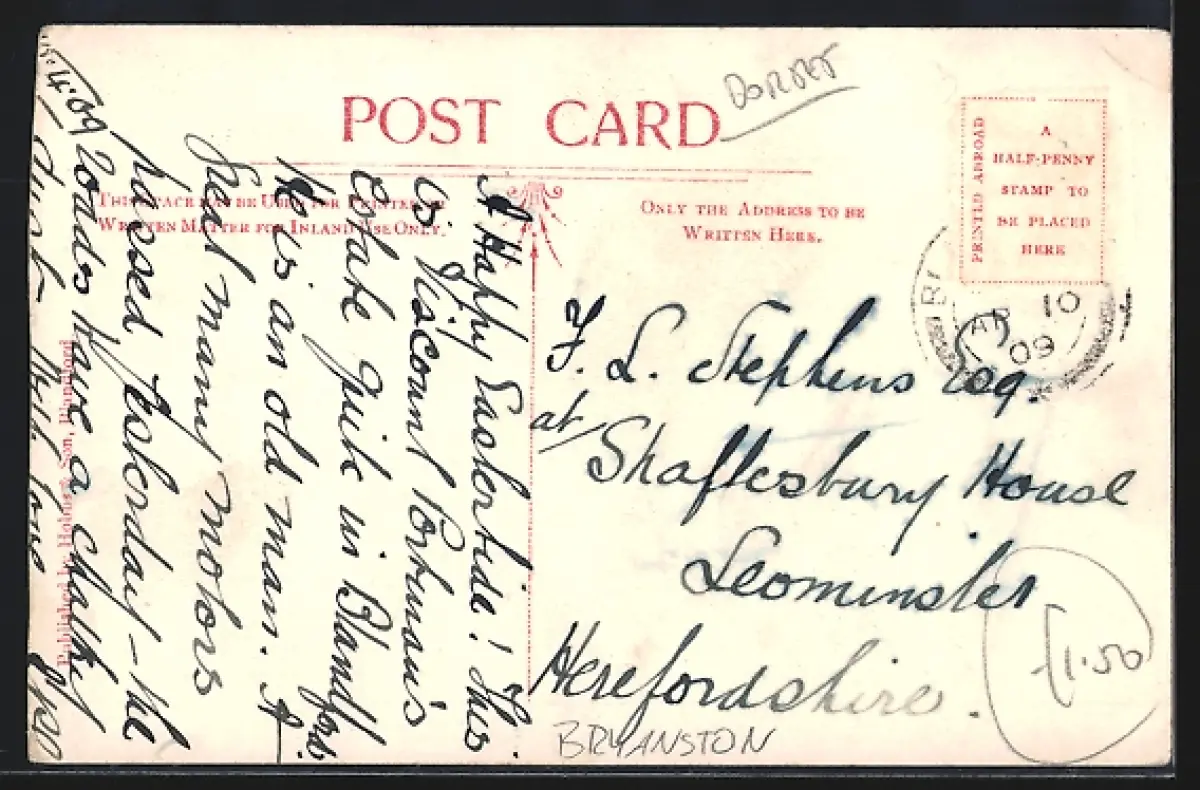 POST CARD
DORSET
PRINTED ABROAD
A
HALF-PENNY
STAMP TO
BE PLACED
HERE
THIS SPACE MAY BE USED FOR PRINTED OR
WRITTEN MATTER FOR INLAND USE ONLY.
ONLY THE ADDRESS TO BE
WRITTEN HERE.
Published by Hobbs & Son, Blandford
BL
AP 10
09
F. L. Stephens Esq.
at Shaftesbury House
Leominster
Herefordshire.
BRYANSTON
£1.50
A Happy Eastertide! This
is Viscount Portman's
Estate quite in Blandford.
He is an old man. A
great many motors
passed yesterday – the
roads have a chalky
dust. With love
4.09